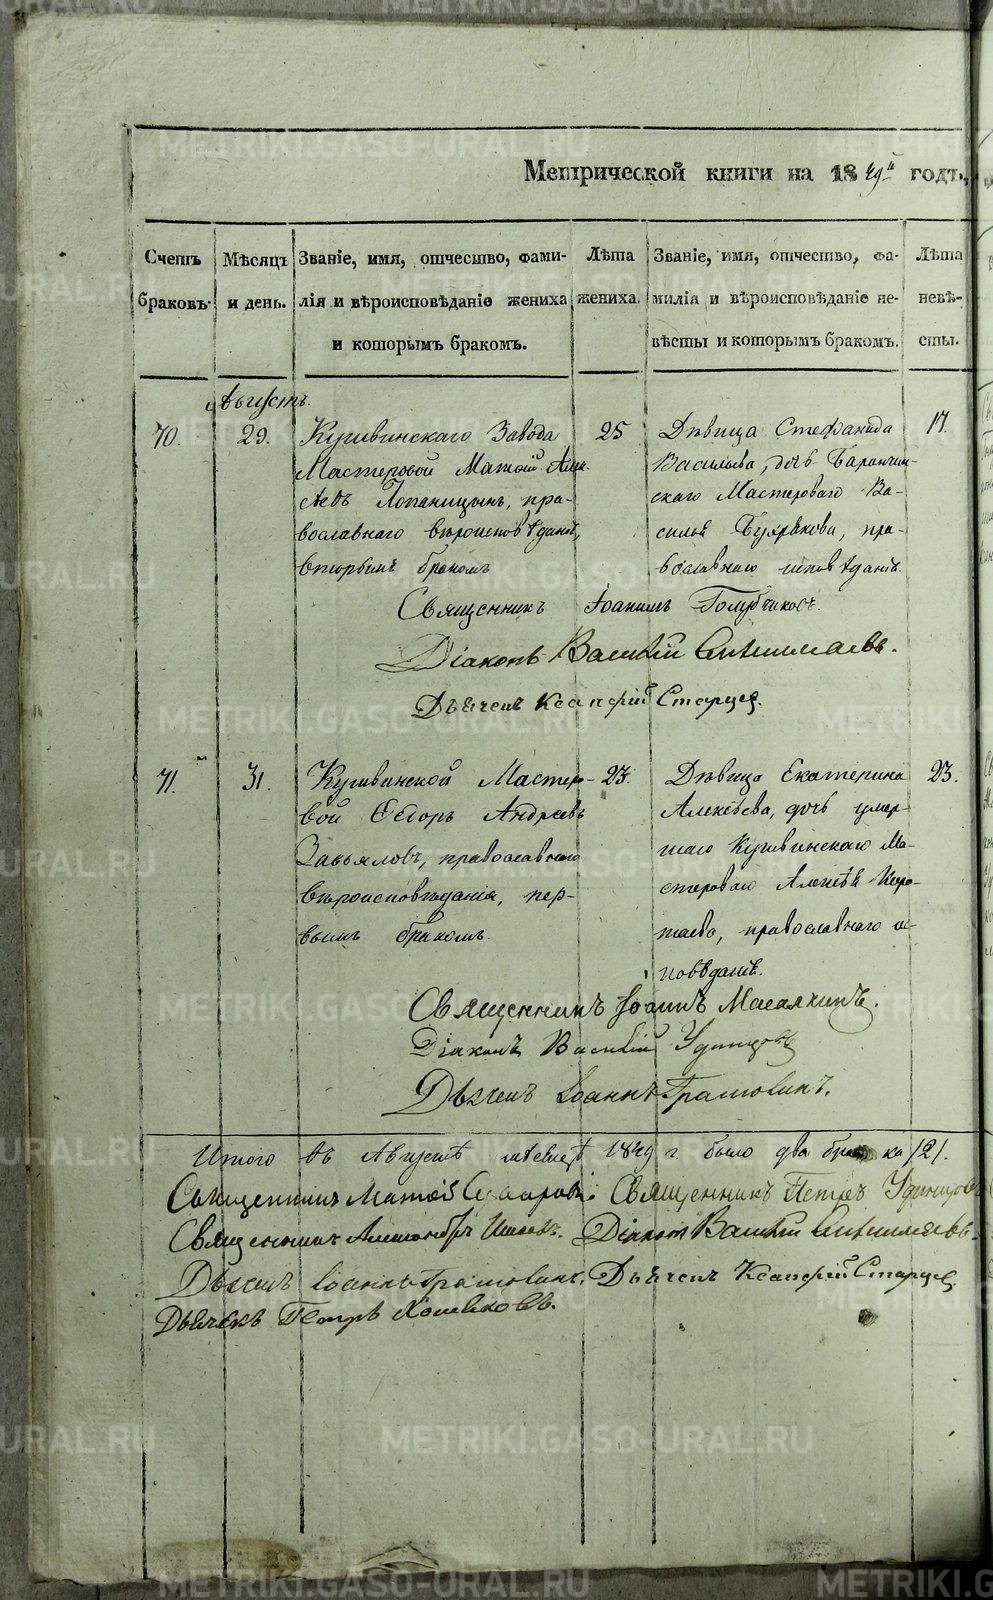 Метрической книги на 1849й годъ,
Счетъ браковъ.
Мѣсяцъ и день.
Званіе, имя, отчество, фами-
лія и вѣроисповѣданіе жениха
и которымъ бракомъ.
Лѣта
жениха.
Званіе, имя, отчество, фа-
милія и вѣроисповѣданіе не-
вѣсты и которымъ бракомъ.
Лѣта
невѣ-
сты.
Августъ.
70.
29.
Кушвинскаго Завода
Мастеровой Матѳій Алек-
сѣевъ Лопаницынъ, пра-
вославнаго вѣроисповѣданія,
вторымъ бракомъ
25
Дѣвица Стефанида
Васильева, дочь Баранчин-
скаго Мастероваго Ва-
силья Бухрякова, пра-
вославнаго исповѣданія.
17.
Священникъ Іоакимъ Голубчиковъ.
Діаконъ Василій
Дьячекъ Ксенофій Старцев
71.
31.
Кушвинской Мастеро-
вой Егоръ Андреевъ
Завьяловъ, православнаго
вѣроисповѣданія, пер-
вымъ бракомъ.
23.
Дѣвица Екатерина
Алексѣева, дочь умер-
шаго Кушвинскаго Ма-
стероваго Алексѣя
православнаго ис-
повѣданія.
23.
Священникъ Іоаннъ
Діаконъ Василій Удинцовъ
Дьячекъ Іоаннъ Грамовинъ.
Итого въ Августѣ мѣсяцѣ 1849 г. было два брака /2/.
Священникъ Матѳій Священникъ Петръ Удинцовъ
Священникъ Александръ Діаконъ Василій
Дьячекъ Іоаннъ Грамовинъ. Дьячекъ Ксенофій Старцев
Дьячекъ Петръ
METRIKI.GASO-URAL.RU